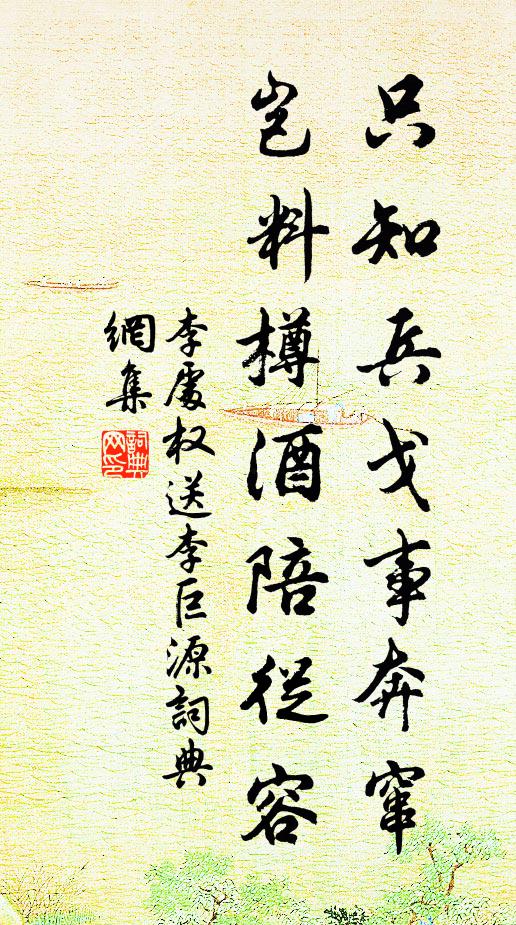 只知兵戈事奔窜
岂料樽酒陪從容
李處权送李巨源詞典
網集
詞典
网印